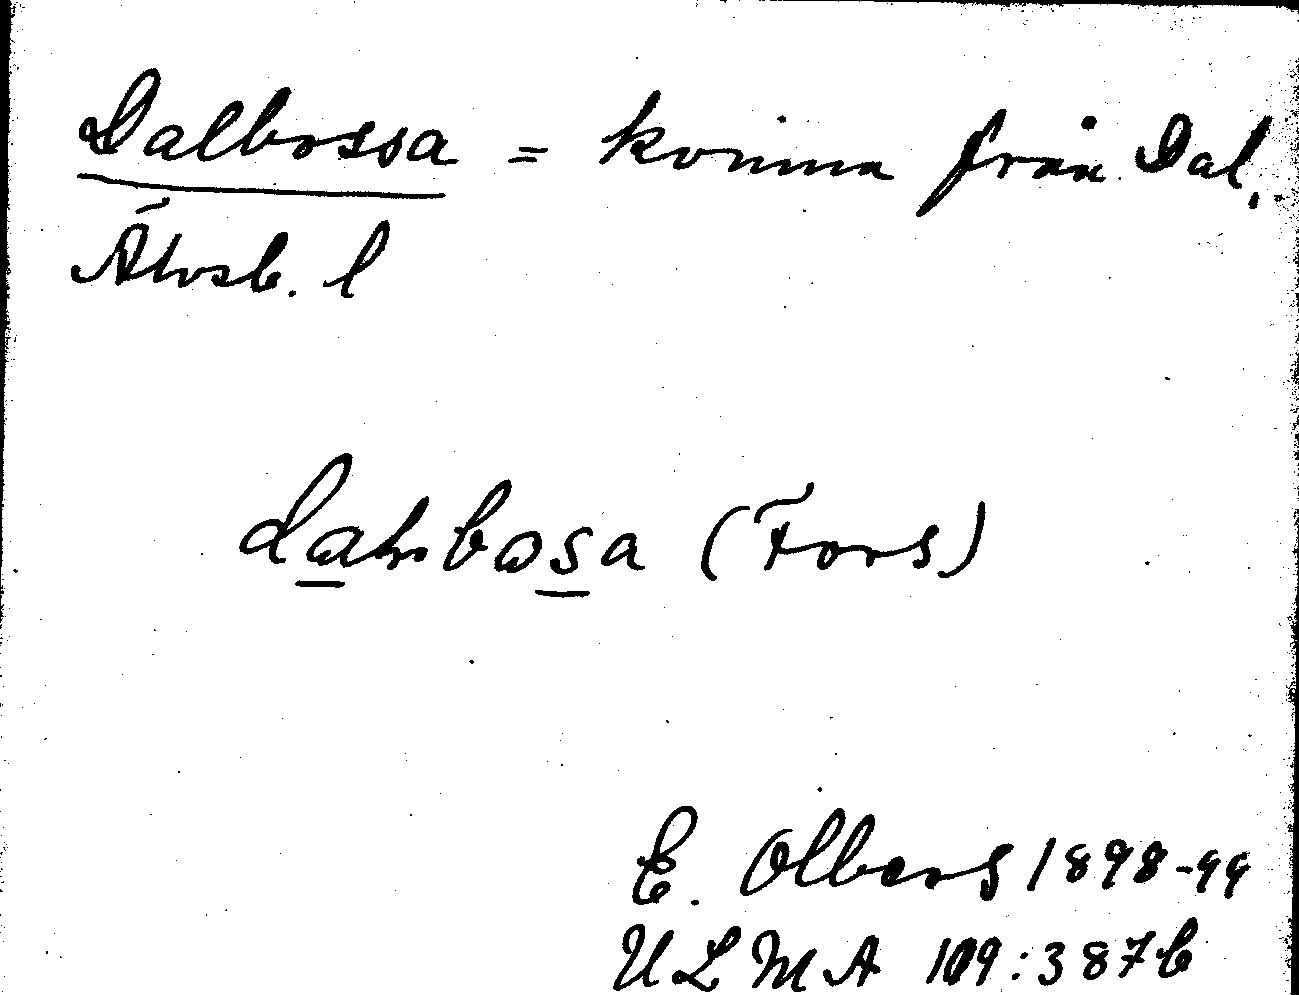 Dalbossa = kvinna från Dal.
Älvsb. l
(Fors)
E. Olbers 1898-99
ULMA 109:387b